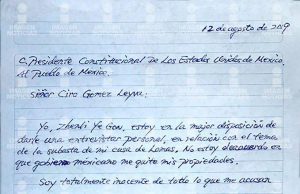 12 de agosto de 2019
C. Presidente Constitucional De Los Estados Unidos de Mexico,
Al Pueblo de Mexico.
Señor Ciro Gomez Leyva;
Yo, Zhenli Ye Gon, estoy en la mejor disposición de
darle una entrevista personal, en relación con el tema
de la subasta de mi casa de Lomas, No estoy de acuerdo en
que gobierno mexicano me quite mis propiedades.
Soy totalmente inocente de todo lo que me acusan